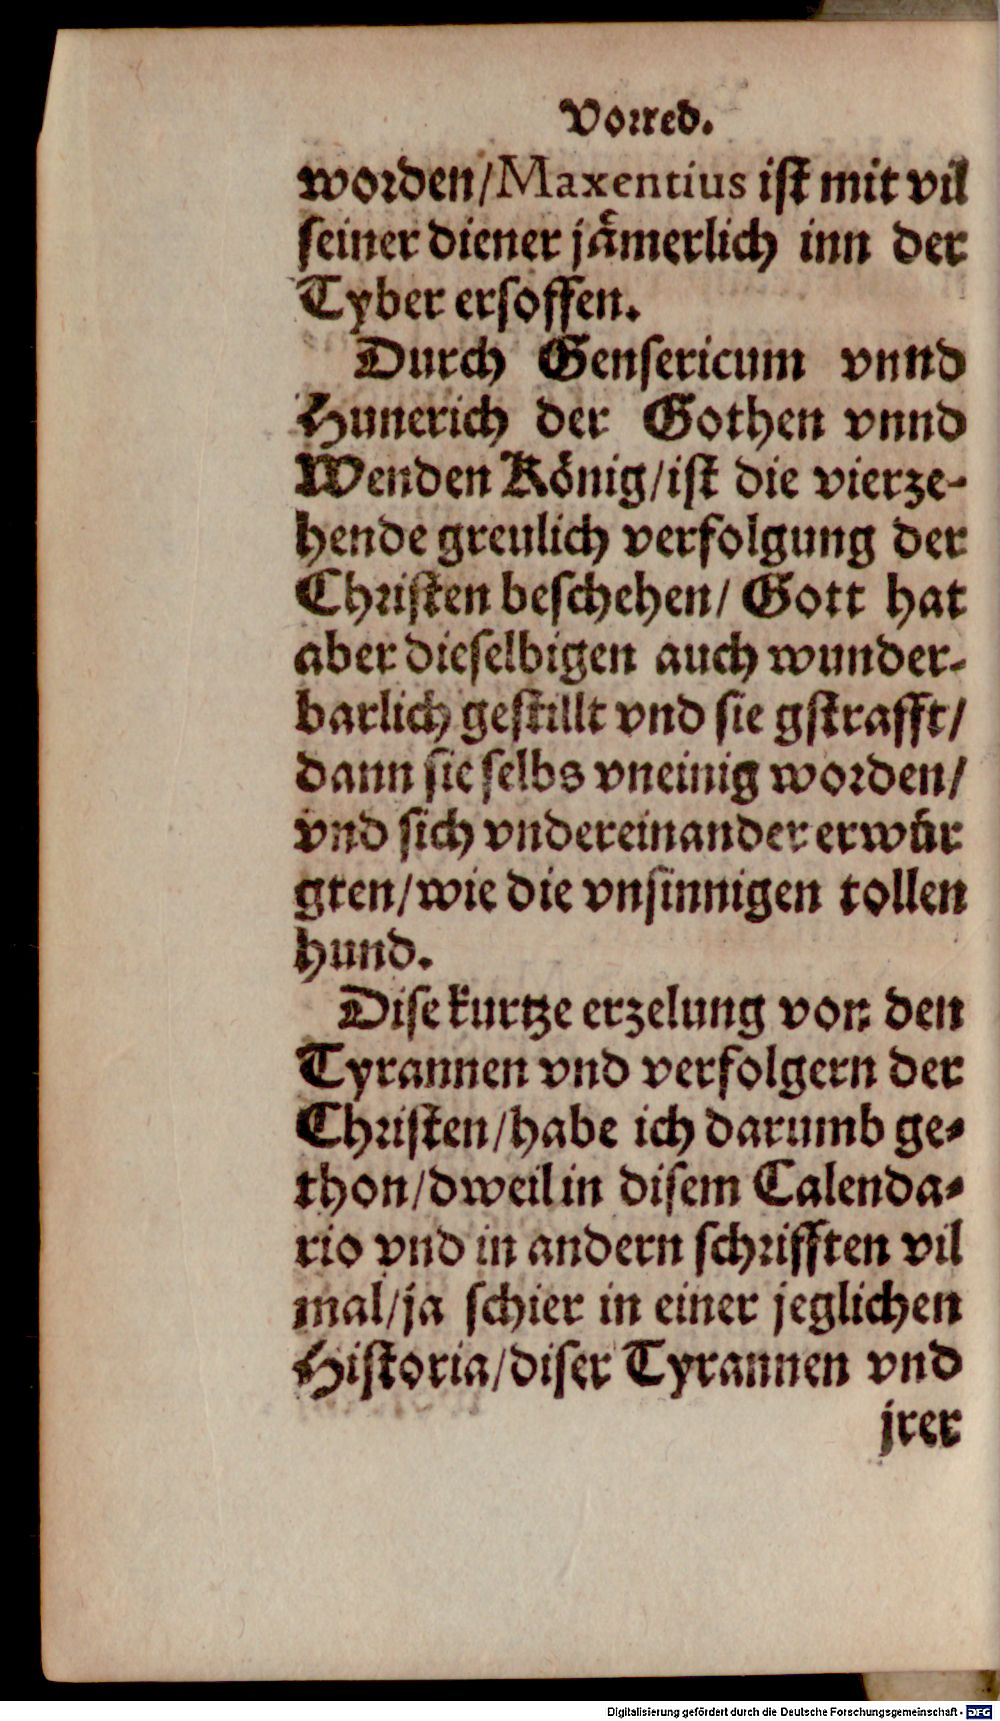 Vorred.
worden/Maxentius ist mit vil
seiner diener jämerlich inn der
Tyber ersoffen.
Durch Gensericum vnnd
Hunerich der Gothen vnnd
Wenden König/ist die vierze-
hende greulich verfolgung der
Christen beschehen/ Gott hat
aber dieselbigen auch wunder-
barlich gestillt vnd sie gstrafft/
dann sie selbs vneinig worden/
vnd sich vndereinander erwür
gten/wie die vnsinnigen tollen
hund.
Dise kurtze erzelung von den
Tyrannen vnd verfolgern der
Christen/habe ich darumb ge-
thon/dweil in disem Calenda-
rio vnd in andern schrifften vil
mal/ja schier in einer jeglichen
Historia/diser Tyrannen vnd
jrer
Digitalisierung gefördert durch die Deutsche Forschungsgemeinschaft - DFG